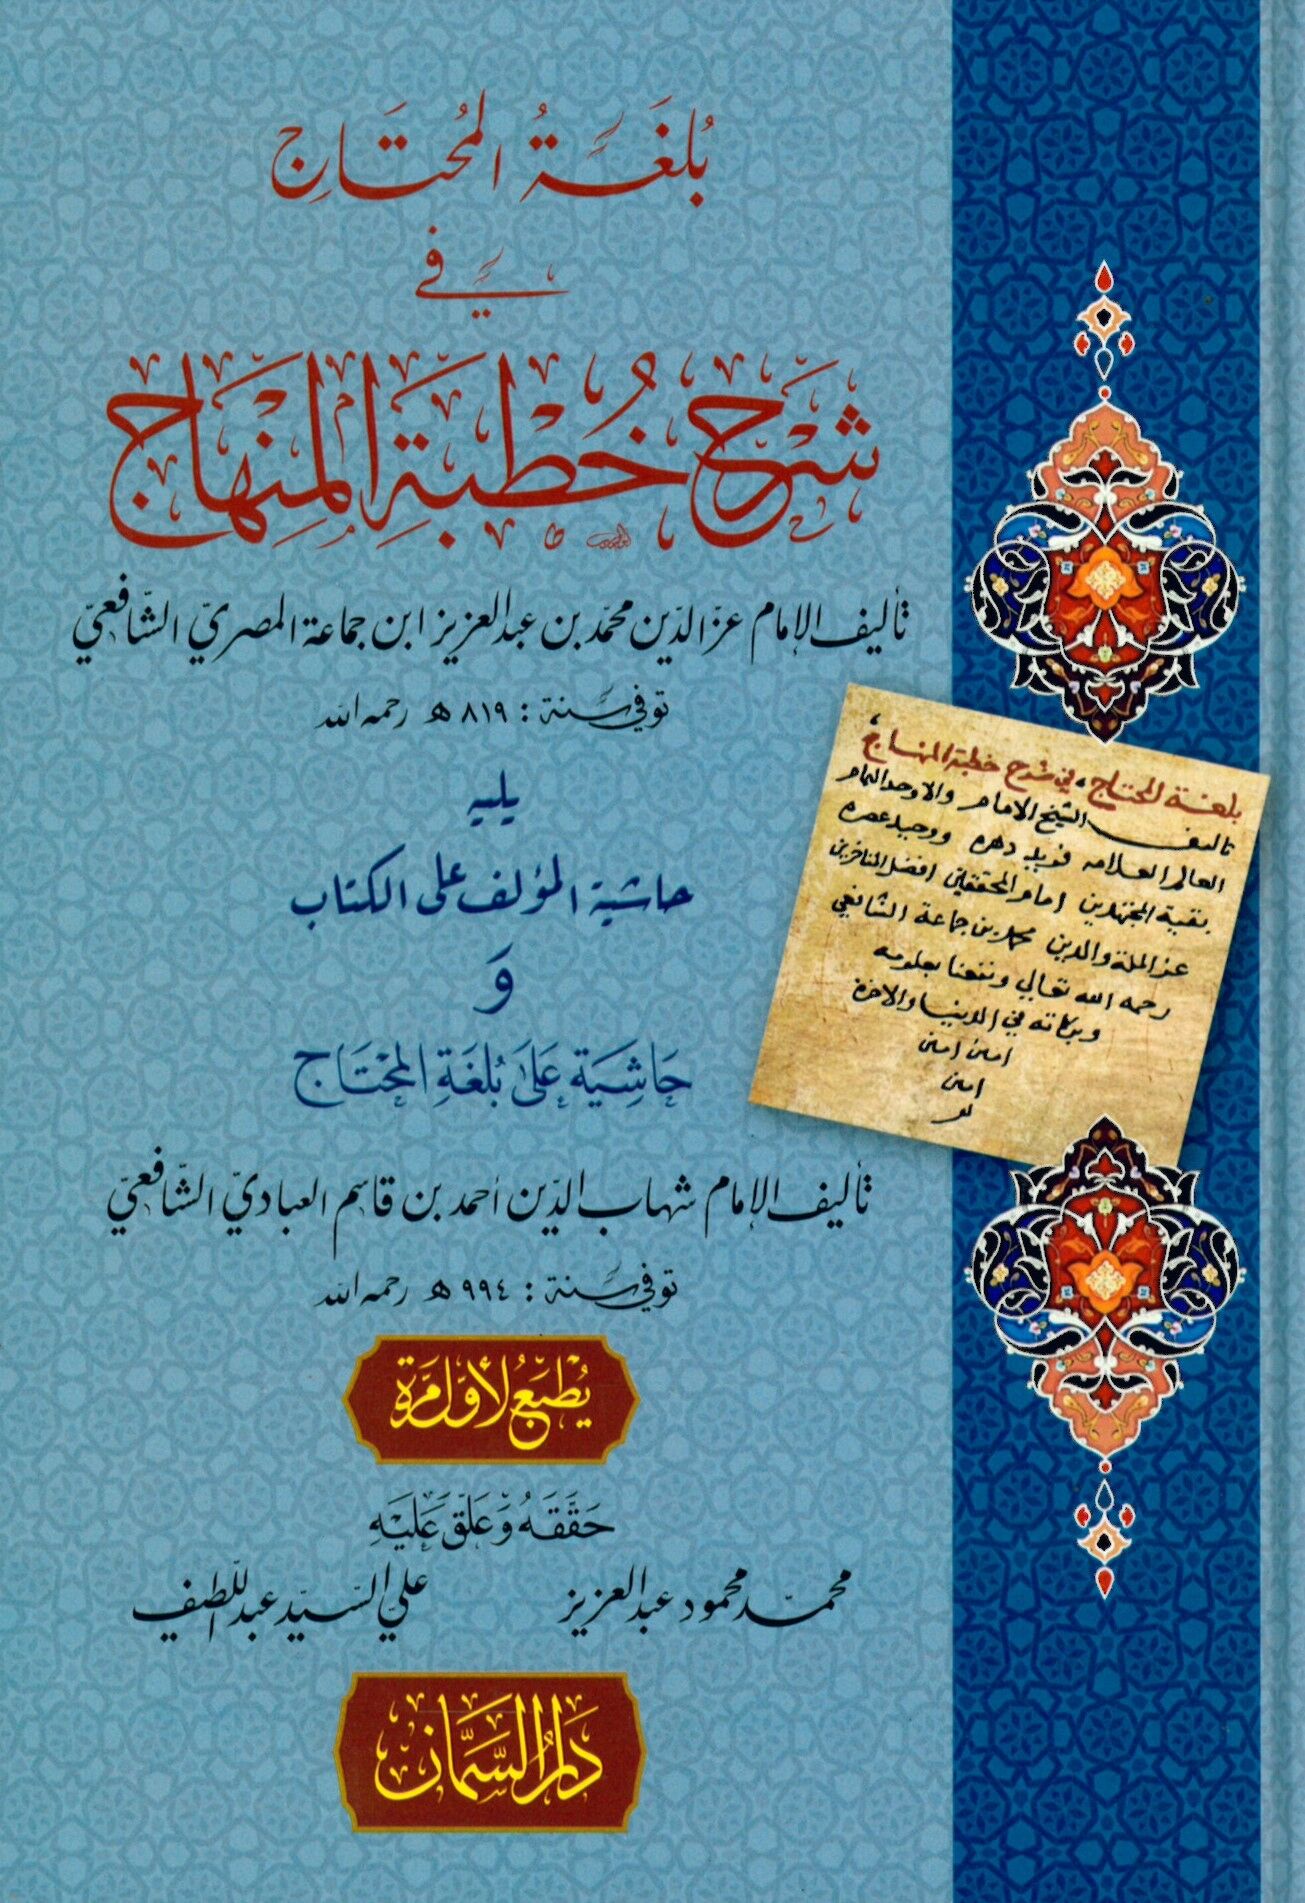 بُلغَةُ المُحتَاجِ
في
شَرْحِ خُطبَةِ المِنهَاج
تأليف الإمام عزّ الدّين محمّد بن عبد العزيز ابن جماعة المصريّ الشّافعيّ
توفي سنة : ٨١٩ هـ رحمه الله
يليه
حاشية المؤلف على الكتاب
وَ
حَاشِيَة عَلَى بُلغَةِ المُحْتَاج
تأليف الإمام شهاب الدّين أحمد بن قاسم العباديّ الشّافعيّ
توفي سنة : ٩٩٤ هـ رحمه الله
يُطبَعُ لأوَّل مَرَّة
حَقَّقَهُ وَعَلَّقَ عَلَيْهِ
محمّد محمود عبد العزيز
علي السّيّد عبد اللّطيف
دَارُ السَّمَّان
بلغة المحتاج، في شرح خطبة المنهاج،
تاليف الشيخ الامام والاوحد الهمام
العالم العلامه فريد دهره ووحيد عصره
بقية المجتهدين امام المحققين افضل المتاخرين
عز الملة والدين محمد بن جماعة الشافعي
رحمه الله تعالي ونفعنا بعلومه
وبركاته في الدنيا والاخرة
امين امين
امين